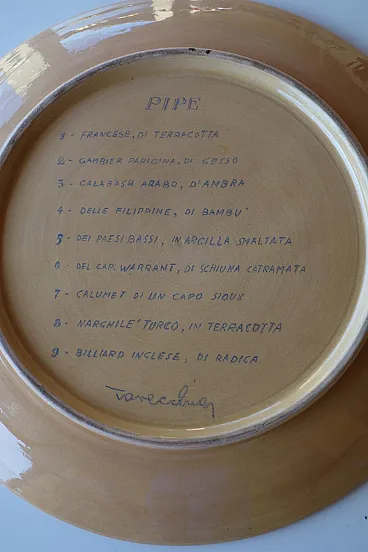 PIPE
1 - FRANCESE, DI TERRACOTTA
2 - GAMBIER PARIGINA, DI GESSO
3 - CALABASH ARABO, D'AMBRA
4 - DELLE FILIPPINE, DI BAMBU'
5 - DEI PAESI BASSI, IN ARGILLA SMALTATA
6 - DEL CAP. WARRANT, DI SCHIUMA CATRAMATA
7 - CALUMET DI UN CAPO SIOUX
8 - NARGHILE' TURCO, IN TERRACOTTA
9 - BILLIARD INGLESE, DI RADICA